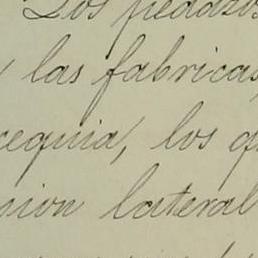 Los pedazos
las fabricas
cequia, los q
sion lateral